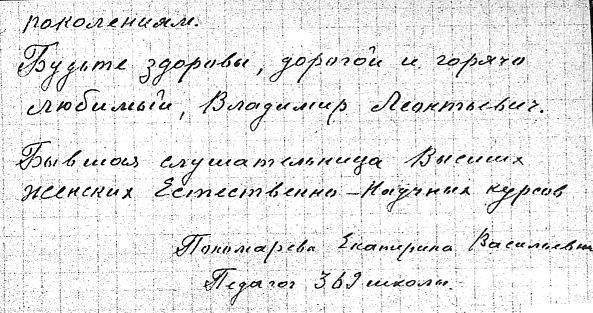 поколениям.
Будьте здоровы, дорогой и горячо
любимый, Владимир Леонтьевич.
Бывшая слушательница Высших
женских Естественно-Научных курсов
Пономарева Екатерина Васильевна
Педагог 369 школы.